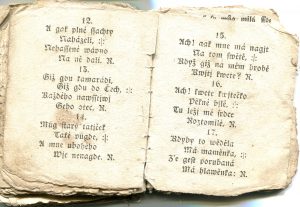 12.
A gak plné ssachty
Naházeli, :,:
Nehassené wápno
Na ně dali. R.
13.
Giž gdu kamarádi,
Giž gdu do Čech, :,:
Každého nawsstiwj
Geho otec. R.
14.
Můg starý tatjček
Také půgde, :,:
A mne ubohého
Wjc nenagde. R.
15.
Ach! gak mne má nagjt
Na tom swětě, :,:
Když giž na mém hrobě
Kwjtj kwete? R.
16.
Ach! kwete kwjtečko
Pěkné bjlé, :,:
Tu ležj mé srdce
Roztomilé. R.
17.
Kdyby to wěděla
Má maměnka, :,:
Že gest porubaná
Má hlawěnka: R.